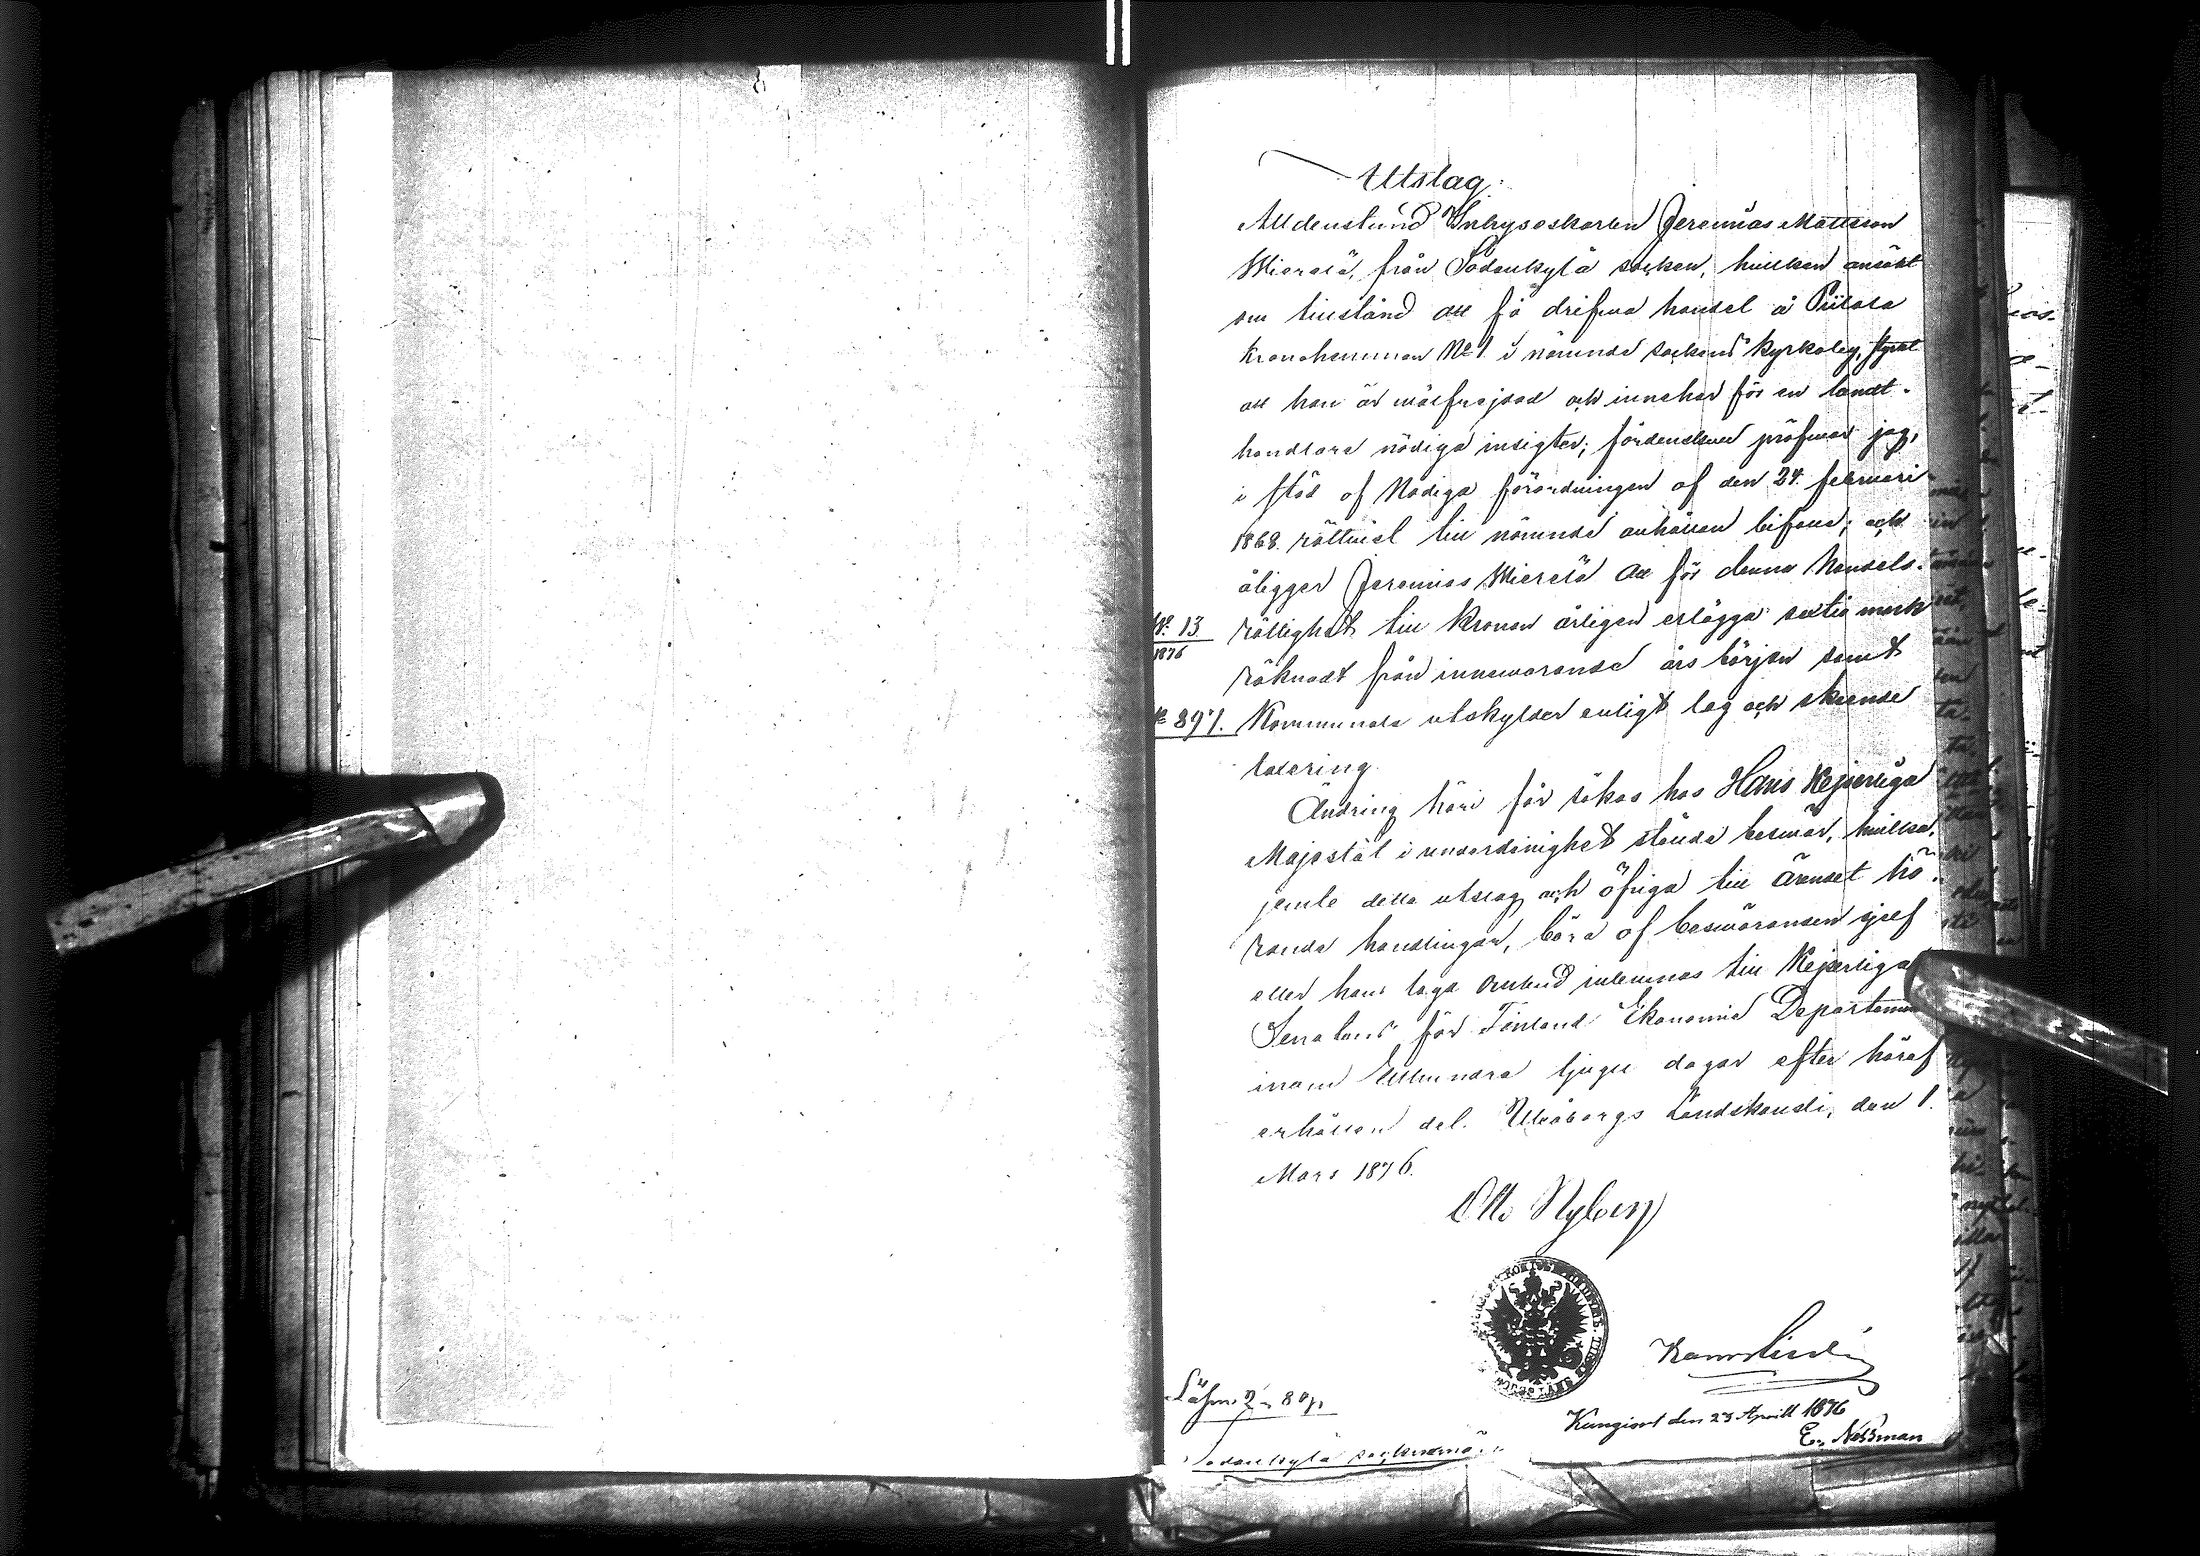 Utslag.
Alldenstund Inhyseskarlen Jeremias Mattsson
från Sodankylä socken, hvilken ansökt
om tillstånd att få drifva handel å
Kronohemman No 1. i nämnda sockens kyrkoby, styrkt
att han är välfrejdad och innehar för en landt-
handlare nödiga insigter; fördenskull pröfvar jag,
i stöd af Nådiga förordningen af den 24. februari
1868. rättvist till nämnda anhållan bifalla; och
åligger Jeremias att för denna handels-
rättighet till Kronan årligen erlägga sextio mark
räknadt från innevarande års början samt
Kommunala utskylder enligt lag och skeende
taxering.
Ändring häri får sökas hos Hans Kejserliga
Majestät i underdånighet stälda besvär, hvilka,
jemte detta utslag och öfriga till ärendet hö-
rande handlingar, böra af besväranden sjelf
eller hans laga ombud inlemnas till Kejserliga
Senatens för Finland Ekonomie Departement
inom Etthundra tjugu dagar efter häraf
erhållen del. Uleåborgs Landskansli, den 1.
Mars 1876.
No 13
1876
№ 897.
Otto Nyberg
Lösen 2 80 p.
Sodankylä
Kungjort den 23 Aprill 1876
E. Nessman